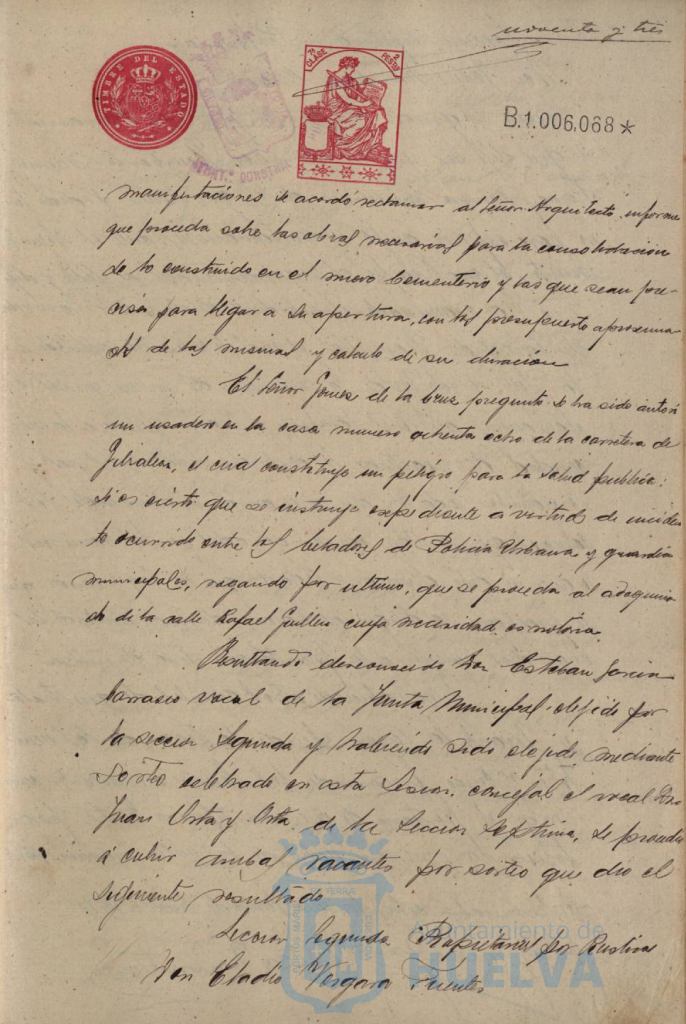 noventa y tres
TIMBRE DEL ESTADO
7ª CLASE 2 PESETAS
B.1.006,068*
manifestaciones se acordó reclamar al Señor Arquitecto, informe
que proceda sobre las obras necesarias para la consolidacion
de lo construido en el nuevo Cementerio y las que sean pre-
cisas para llegar a su apertura, con los presupuesto aproxima-
dos de las mismas y calculo de su duracion
El Señor Gomez de la Cruz pregunto se ha sido autori
un usadero en la casa numero ochenta ocho de la carretera de
Gibraleon, el cual constituye un peligro para la salud publica;
si es cierto que se instruye expediente á virtud de inciden
te ocurrido entre los Celadores de Policia Urbana y guardia
municipales, rogando por ultimo, que se proceda al adoquina
do de la calle Rafael Guillen cuya necesidad es notoria.
Resultando desconocido Don Esteban Garcia
Carrasco vocal de la Junta Municipal elejido por
la seccion Segunda y habiendo sido elejido mediante
Sorteo celebrado en esta Sesion, concejal el vocal Don
Juan Orta y Orta de la Seccion Septima, se procedio
á cubrir ambas vacantes por sorteo que dio el
siguiente resultado
Seccion Segunda Propietarios por Rustica
Don Eladio Vergara Fuentes
Ayuntamiento de
HUELVA